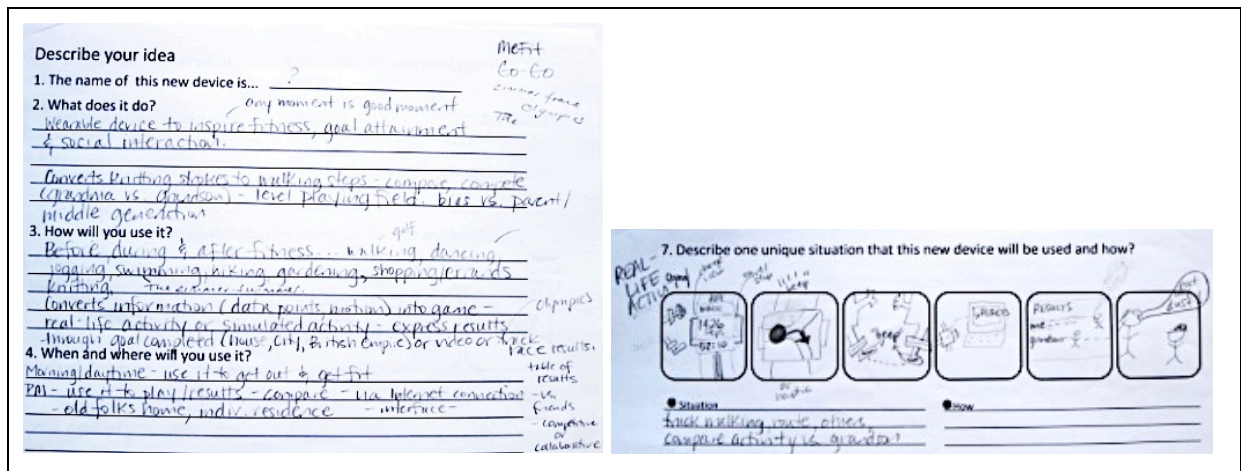 Describe your idea
MeFit
Go-Go
1. The name of this new device is... ?
zimmer frame
Olympics
The
2. What does it do?
any moment is good moment
Wearable device to inspire fitness, goal attainment
& social interaction.
Converts knitting strokes to walking steps - compare, compete
(grandma vs. grandson) - level playing field. bias vs. parent/
middle generation
3. How will you use it?
golf
Before, during & after fitness... walking, dancing,
jogging, swimming, hiking, gardening, shopping/errands
knitting,
Converts information (data points, motion) into game -
Olympics
real-life activity or simulated activity - express results
through goal completed (house, city, British Empire) or video or track
race results.
4. When and where will you use it?
Morning/daytime - use it to get out & get fit
table of
results
PM - use it to play/results - compare - via Internet connection
- vs
friends
- old folks home, indiv. residence - interface -
- competitive
or
collaborative
7. Describe one unique situation that this new device will be used and how?
REAL-
LIFE
ACTIV
1426
steps
52:10
beep
RESULTS
me
grandson
Situation
How
track walking, route, others,
compare activity vs grandson